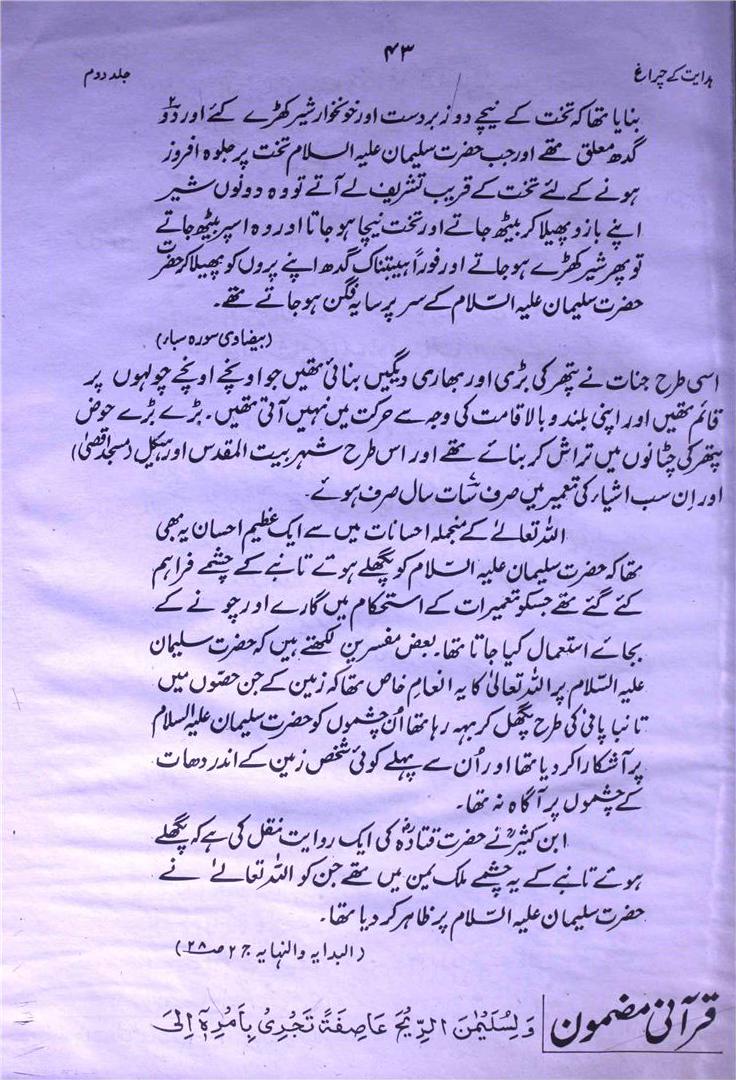 ۴۳
ہدایت کے چراغ
جلد دوم
بنایا تھا کہ تخت کے نیچے دو زبردست اور خونخوار شیر کھڑے کئے اور دو۲
گدھ معلق تھے اور جب حضرت سلیمان علیہ السلام تخت پر جلوہ افروز
ہونے کے لئے تخت کے قریب تشریف لے آتے تو وہ دونوں شیر
اپنے بازو پھیلا کر بیٹھ جاتے اور تخت نیچا ہو جاتا اور وہ اسپر بیٹھ جاتے
تو پھر شیر کھڑے ہو جاتے اور فوراً ہیبتناک گدھ اپنے پروں کو پھیلا کر حضرت
حضرت سلیمان علیہ السّلام کے سر پر سایہ فگن ہو جاتے تھے۔
(بیضاوی سورہ سباء)
اسی طرح جنات نے پتھر کی بڑی اور بھاری دیگیں بنائی تھیں جو اونچے اونچے چولہوں پر
قائم تھیں اور اپنی بلند و بالا قامت کی وجہ سے حرکت میں نہیں آتی تھیں۔ بڑے بڑے حوض
پتھر کی چٹانوں میں تراش کر بنائے تھے اور اس طرح شہر بیت المقدس اور ہیکل (مسجد اقصیٰ)
اور اِن سب اشیاء کی تعمیر میں صرف سات سال صرف ہوئے۔
اللہ تعالےٰ کے منجملہ احسانات میں سے ایک عظیم احسان یہ بھی
تھا کہ حضرت سلیمان علیہ السّلام کو پگھلے ہوئے تانبے کے چشمے فراہم
کئے گئے تھے جسکو تعمیرات کے استحکام میں گارے اور چونے کے
بجائے استعمال کیا جاتا تھا۔ بعض مفسرین لکھتے ہیں کہ حضرت سلیمان
علیہ السّلام پر اللہ تعالیٰ کا یہ انعام خاص تھا کہ زمین کے جن حصّوں میں
تانبا پانی کی طرح پگھل کر بہہ رہا تھا اُن چشموں کو حضرت سلیمان علیہ السلام
پر آشکارا کر دیا تھا اور اُن سے پہلے کوئی شخص زمین کے اندر دھات
کے چشموں پر آگاہ نہ تھا۔
ابن کثیرؒ نے حضرت قتادہؒ کی ایک روایت نقل کی ہے کہ پگھلے
ہوئے تانبے کے یہ چشمے ملک یمن میں تھے جن کو اللہ تعالےٰ نے
حضرت سلیمان علیہ السّلام پر ظاہر کر دیا تھا۔
(البدایہ والنہایہ ج ۲ ص ۲۸)
قرآنی مضمون
وَلِسُلَیْمٰنَ الرِّیْحَ عَاصِفَۃً تَجْرِیْ بِاَمْرِہٖٓ اِلَی